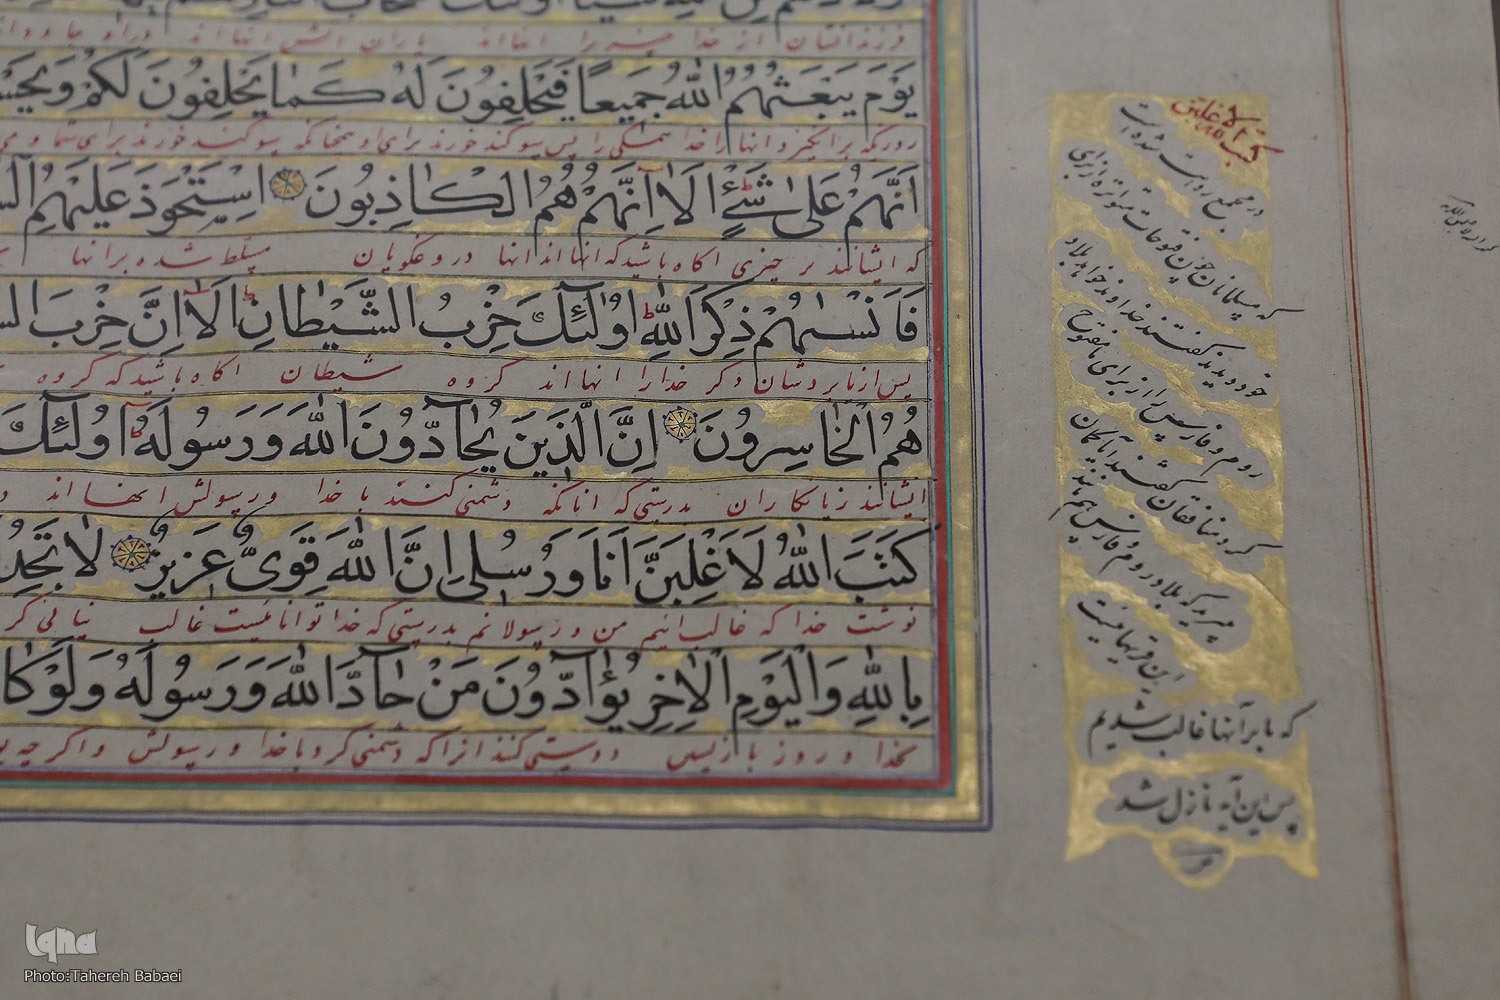 فرزندانشان از خدا چیزی را انها اند یاران آتش انها اند در او جاودان
يَوْمَ يَبْعَثُهُمُ اللّٰهُ جَمِيعًا فَيَحْلِفُونَ لَهُ كَمَا يَحْلِفُونَ لَكُمْ وَيَحْسَ
روزیکه برانگیزد انها را خدا همگی را پس سوگند خورند برای او همچنانکه سوگند خورند برای شما و می
اَنَّهُمْ عَلٰى شَيْءٍ اَلَا اِنَّهُمْ هُمُ الْكَاذِبُونَ اِسْتَحْوَذَ عَلَيْهِمُ الشَّ
که ایشانند بر چیزی آگاه باشید که انها اند انها دروغگویان مسلط شده بر انها
فَاَنْسٰيهُمْ ذِكْرَ اللّٰهِ اُولٰئِكَ حِزْبُ الشَّيْطَانِ اَلَا اِنَّ حِزْبَ الشَّ
پس از یاد بردشان ذکر خدا را انها اند گروه شیطان آگاه باشید که گروه
هُمُ الْخَاسِرُونَ اِنَّ الَّذِينَ يُحَادُّونَ اللّٰهَ وَرَسُولَهُ اُولٰئِكَ
ایشانند زیانکاران بدرستی که انانکه دشمنی کنند با خدا و رسولش انها اند
كَتَبَ اللّٰهُ لَاَغْلِبَنَّ اَنَا وَرُسُلِي اِنَّ اللّٰهَ قَوِيٌّ عَزِيزٌ لَا تَجِدُ
نوشت خدا که غالب ائیم من و رسولانم بدرستی که خدا توانائیست غالب نیابی
بِاللّٰهِ وَالْيَوْمِ الْاٰخِرِ يُوَادُّونَ مَنْ حَادَّ اللّٰهَ وَرَسُولَهُ وَلَوْ كَا
بخدا و روز بازپسین دوستی کنند انرا که دشمنی کرد با خدا و رسولش و اگر چه
کتب الله لاغلبن
در مجمع روایت شده است
که مسلمانان چون فتوحات متواتره از برای
خود دیدند گفتند خداوند خواهد بلاد
روم و فارس را از برای ما مفتوح
کرد منافقان گفتند آیا گمان
میبرید که بلاد روم و فارس هم مانند
این قریهاییست
که ما بر آنها غالب شدیم
پس این آیه نازل شد
Iqna
Photo:Tahereh Babaei